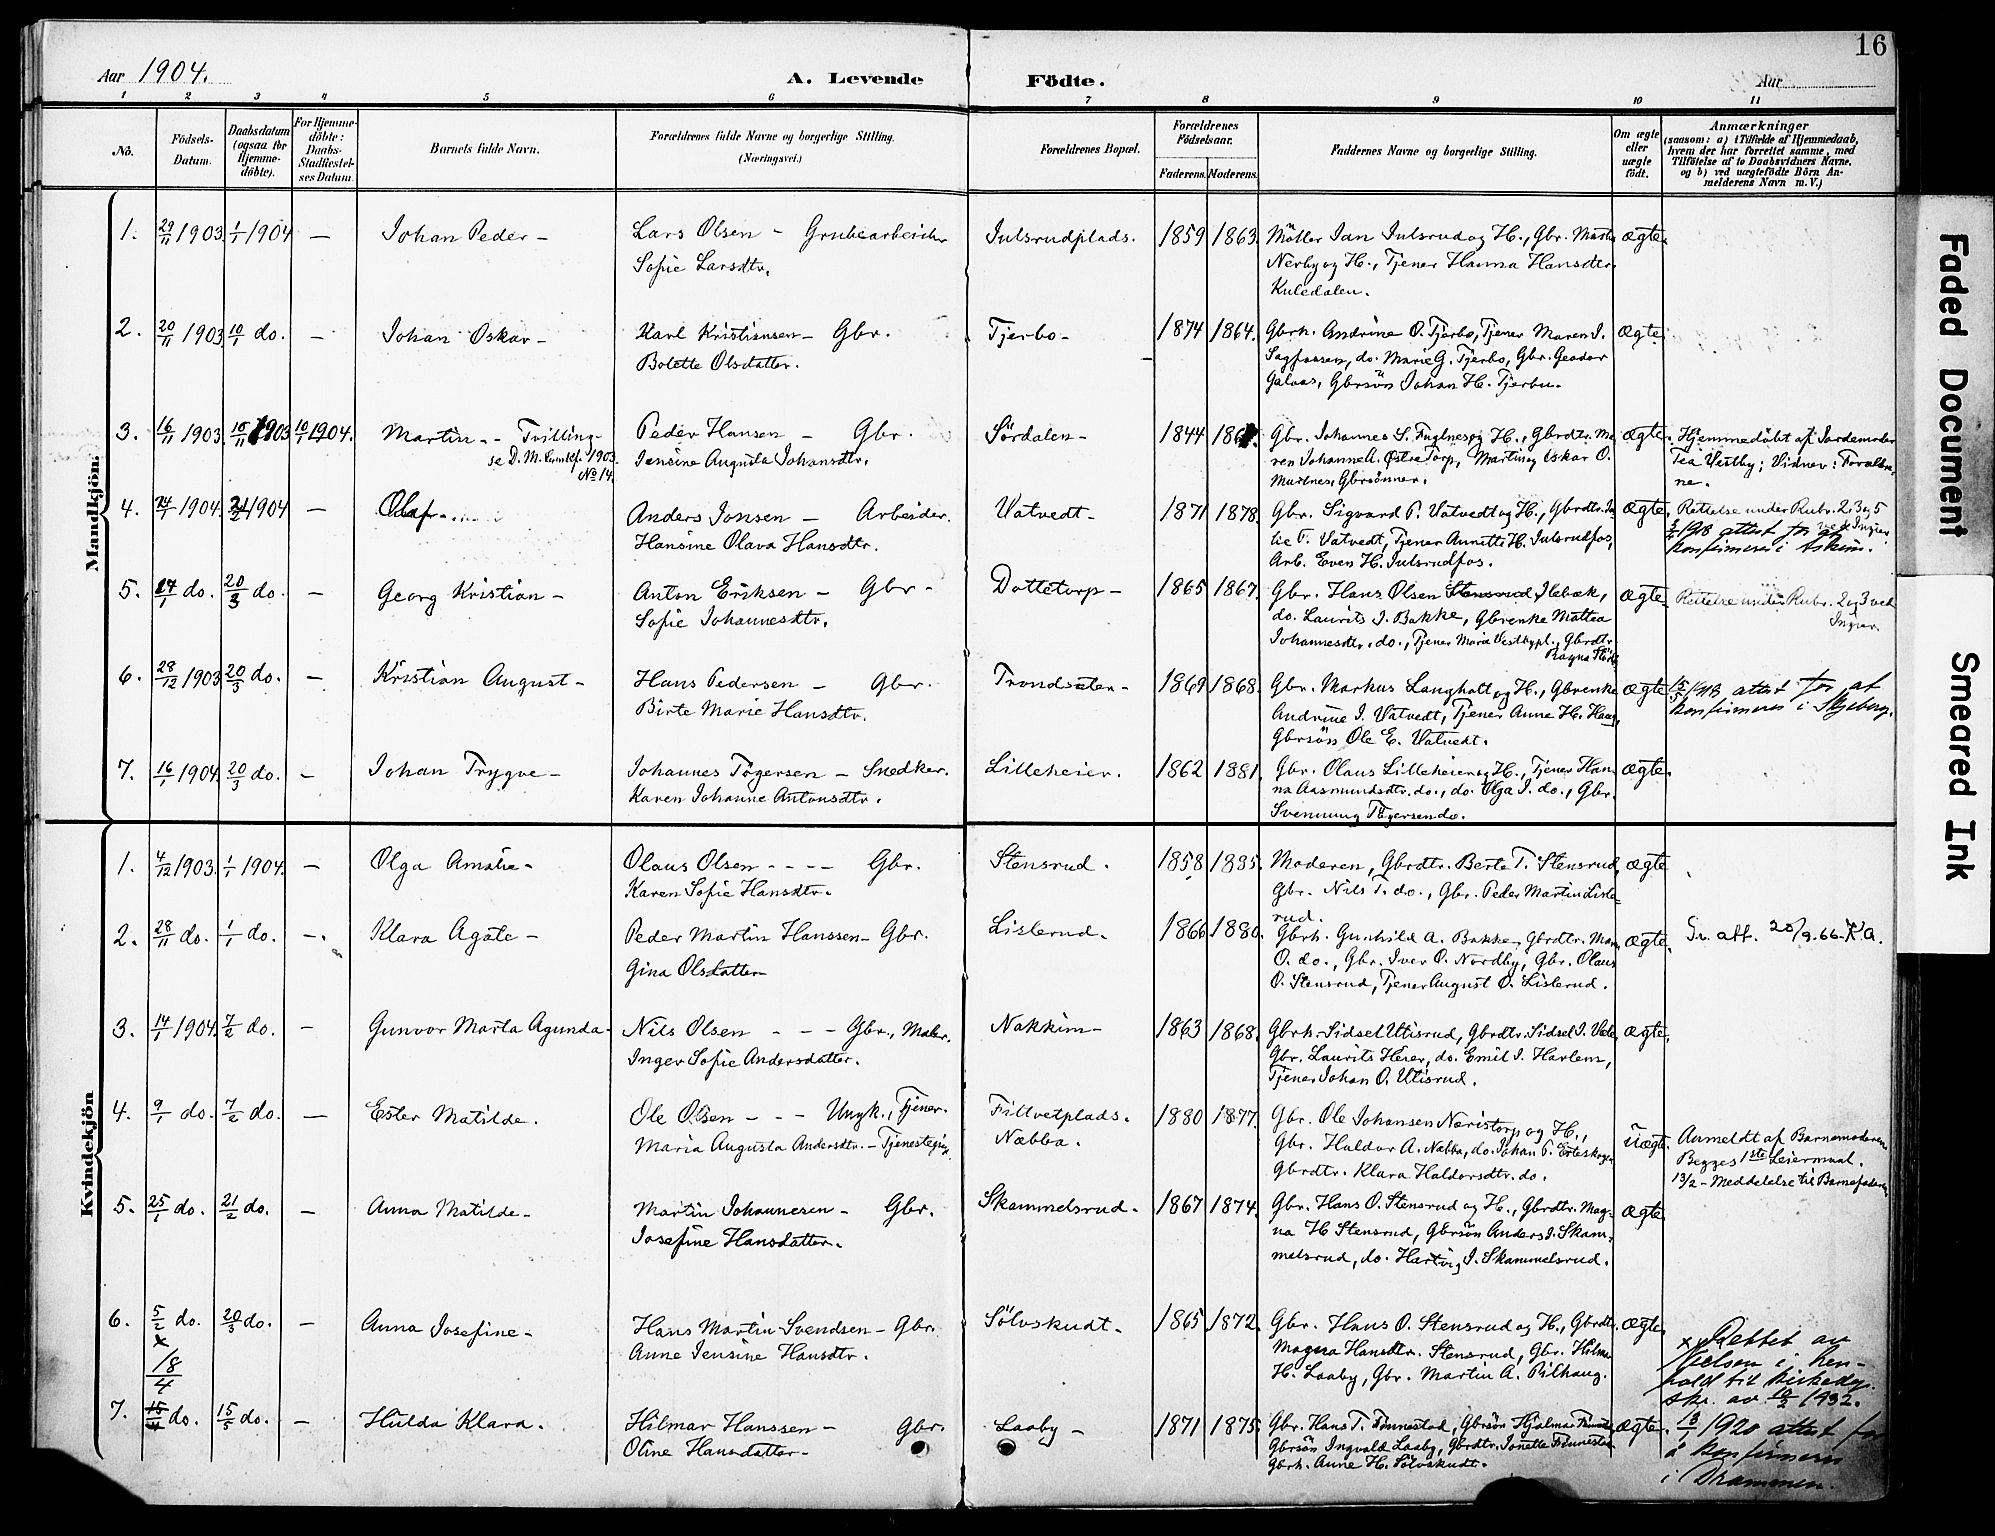 16
Aar 1904. A. Levende Födte. Aar
1 2 3 4 5 6 7 8 9 10 11
No. Födsels-Datum. Daabsdatum (ogsaa for Hjemmedöbte). For Hjemmedöbte: Daabs-Stadfæstelses Datum. Barnets fulde Navn. Forældrenes fulde Navne og borgerlige Stilling. (Næringsvei.) Forældrenes Bopæl. Forældrenes Födselsaar. Faderens. Moderens. Faddernes Navne og borgerlige Stilling. Om ægte eller uægte födt. Anmærkninger (saasom: a) i Tilfælde af Hjemmedaab, hvem der har forrettet samme, med Tilföielse af to Daabsvidners Navne, og b) ved uægtefödte Börn Anmelderens Navn m. V.)
Mandkjön.
1. 29/11 1903 1/1 1904 — Johan Peder — Lars Olsen — Grubearbeider Julsrudplads. 1859 1863. Möller Jan Julsrud og H., Gbr. ægte.
Sofie Larsdtr. Nerby og H., Tjener Hanna Hansdtr.
Kuledalen.
2. 20/11 1903 10/1 do. — Johan Oskar — Karl Kristiansen — Gbr. Tjerbo — 1874 1864. Gbrk. Andrine O. Tjerbo, Tjener Maren I. ægte
Bolette Olsdatter. Sagfossen, do. Marie G. Tjerbo, Gbr.
Gbrsön Johan H. Tjerbu.
3. 16/11 1903 1903 10/1 1904. Martin — Tvilling — Peder Hansen — Gbr. Sördalen — 1844 Gbr. Johannes S. og H., Gbrdtr. Ma- ægte. Hjemmedöbt af Jordemoder
se D. M. 1903. No 14. Jensine Augusta Johansdtr. ren Johanne A. Østre Torp, Martin og Oskar O. Tea Vestby; Vidner: Forældre-
Gbrsönner. ne.
4. 24/1 1904. 1904 — Olaf Anders Jonsen — Arbeider. Vatvedt — 1871 1878. Gbr. Sigvard P. Vatvedt og H., Gbrdtr. Ju- ægte. Rettelse under Rubr. 2, 3 og 5 ved
Hansine Olava Hansdtr. lie P. Vatvedt, Tjener Annette H. Julsrudfos, 1918 attest for at
Arb. Even H. Julsrudfos. konfirmeres i Askim.
5. do. 20/3 do. — Georg Kristian — Anton Eriksen — Gbr — Dottetorp — 1865 1867. Gbr. Hans Olsen Stensrud Ilebæk, ægte. Rettelse under Rubr. 2 og 3 ved
Sofie Johannesdtr. do. Laurits I. Bakke, Gbrenke Mattea
Johannesdtr. do., Tjener Marie Vestbypl., Gbrdtr.
Ragna
6. 28/12 1903 20/3 do. — Kristian August — Hans Pedersen — Gbr. Trondsæter — 1869 1868. Gbr. Markus Langholt og H., Gbrenke ægte 15/5 1918 attest for at
Birte Marie Hansdtr. Andrine I. Vatvedt, Tjener Anne H. Haug, konfirmeres i Skjeberg.
Gbrsön Ole E. Vatvedt.
7. 16/1 1904. 20/3 do. — Johan Trygve — Johannes Tögersen — Snedker. Lilleheier. 1862 1881. Gbr. Olaus Lilleheier og H., Tjener Han- ægte.
Karen Johanne Antonsdtr. na Aasmundsdtr. do., do. Olga I. do., Gbr.
Svennung Tögersen do.
Kvindekjön
1. 4/12 1903. 1/1 1904. — Olga Amalie — Olaus Olsen — Gbr. Stensrud. 1858 Moderen, Gbrdtr. Berte T. Stensrud, ægte
Karen Sofie Hansdtr. Gbr. Nils T. do., Gbr. Peder Martin Lisle-
rud.
2. 28/11 do. 1/1 do. — Klara Agate — Peder Martin Hanssen — Gbr. Lislerud. 1866 1880. Gbrk. Gunhild A. Bakke, Gbrdtr. ægte. att. 20/9.66. K.A.
Gina Olsdatter — O. do., Gbr. Iver O. Nordby, Gbr. Olaus
O. Stensrud, Tjener August O. Lislerud.
3. 14/1 1904. 7/2 do. — Gunvor Marta Agunda — Nils Olsen — Gbr., Maler. Nakkim — 1863 1868. Gbrk. Sidsel Utisrud, Gbrdtr. Sidsel I. ægte.
Inger Sofie Andersdatter. Gbr. Laurits Heier, do. Emil I. Harlem,
Tjener Johan O. Utisrud.
4. 9/1 do. 7/2 do. — Ester Matilde. Ole Olsen — Ungk., Tjener. Fittvetplads. 1880 1877. Gbr. Ole Johansen Neristorp og H., Uægte. Anmeldt af Barnemoderen
Maria Augusta Andersdtr. — Tjenestepige. Næbba. Gbr. Haldor A. Næbba, do. Johan P. Begges 1ste Leiermaal.
Gbrdtr. Klara Haldorsdtr. do. 13/2 — Meddelelse til Barnefaderen
5. 25/1 do. 21/2 do. — Anna Matilde — Martin Johannesen — Gbr. Skammelsrud. 1867 1874. Gbr. Hans O. Stensrud og H., Gbrdtr. Mag- ægte
Josefine Hansdatter. na H. Stensrud, Gbrsön Anders I. Skam-
melsrud, do. Hartvig I. Skammelsrud.
6. 5/2 do. 20/3 do. — Anna Josefine — Hans Martin Svendsen — Gbr. Sölvskudt — 1865 1872. Gbr. Hans O. Stensrud og H., Gbrdtr. ægte.
x 18/4 Anne Jensine Hansdtr. Magna Hansdtr. Stensrud, Gbr. Hilmar x Rettet av
H. Laaby, Gbr. Martin A. Pilhaug. Nielsen i hen-
hold til
skr. av 10/2 1932.
7. 15/4 do. 15/5 do. — Hulda Klara. Hilmar Hanssen — Gbr. Laaby — 1871 1875. Gbr. Hans T. Finnestad, Gbrsön Hjalmar ægte. 13/1 1920 attest for
Oline Hansdatter — Gbrsön Ingvald Laaby, Gbrdtr. Jonette Finnestad å konfirmeres
Gbrk. Anne H. Sölvskudt. i Drammen.
Faded Document
Smeared Ink